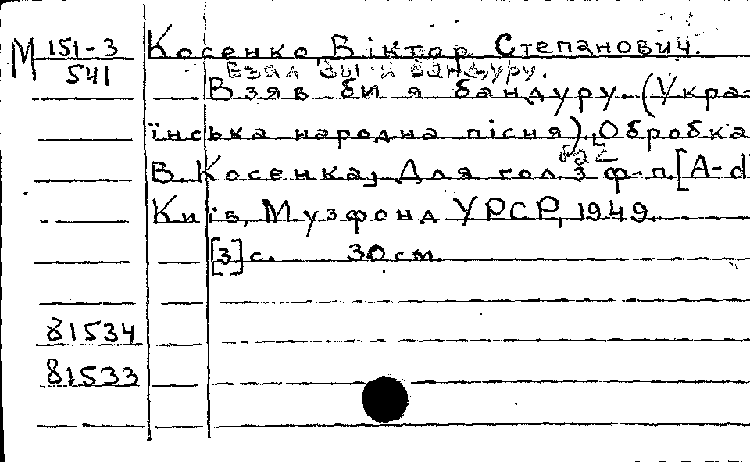 М 151-3 Косенко, Віктор Степанович.
541 Взял бы я бандуру.
Взяв би я бандуру. (Укра-
їнська народна пісня). Обробка
В. Косенка, Для гол. з ф-п. [A-d
Київ, Музфонд УРСР, 1949.
[3] с. 30 см.
81534
81533